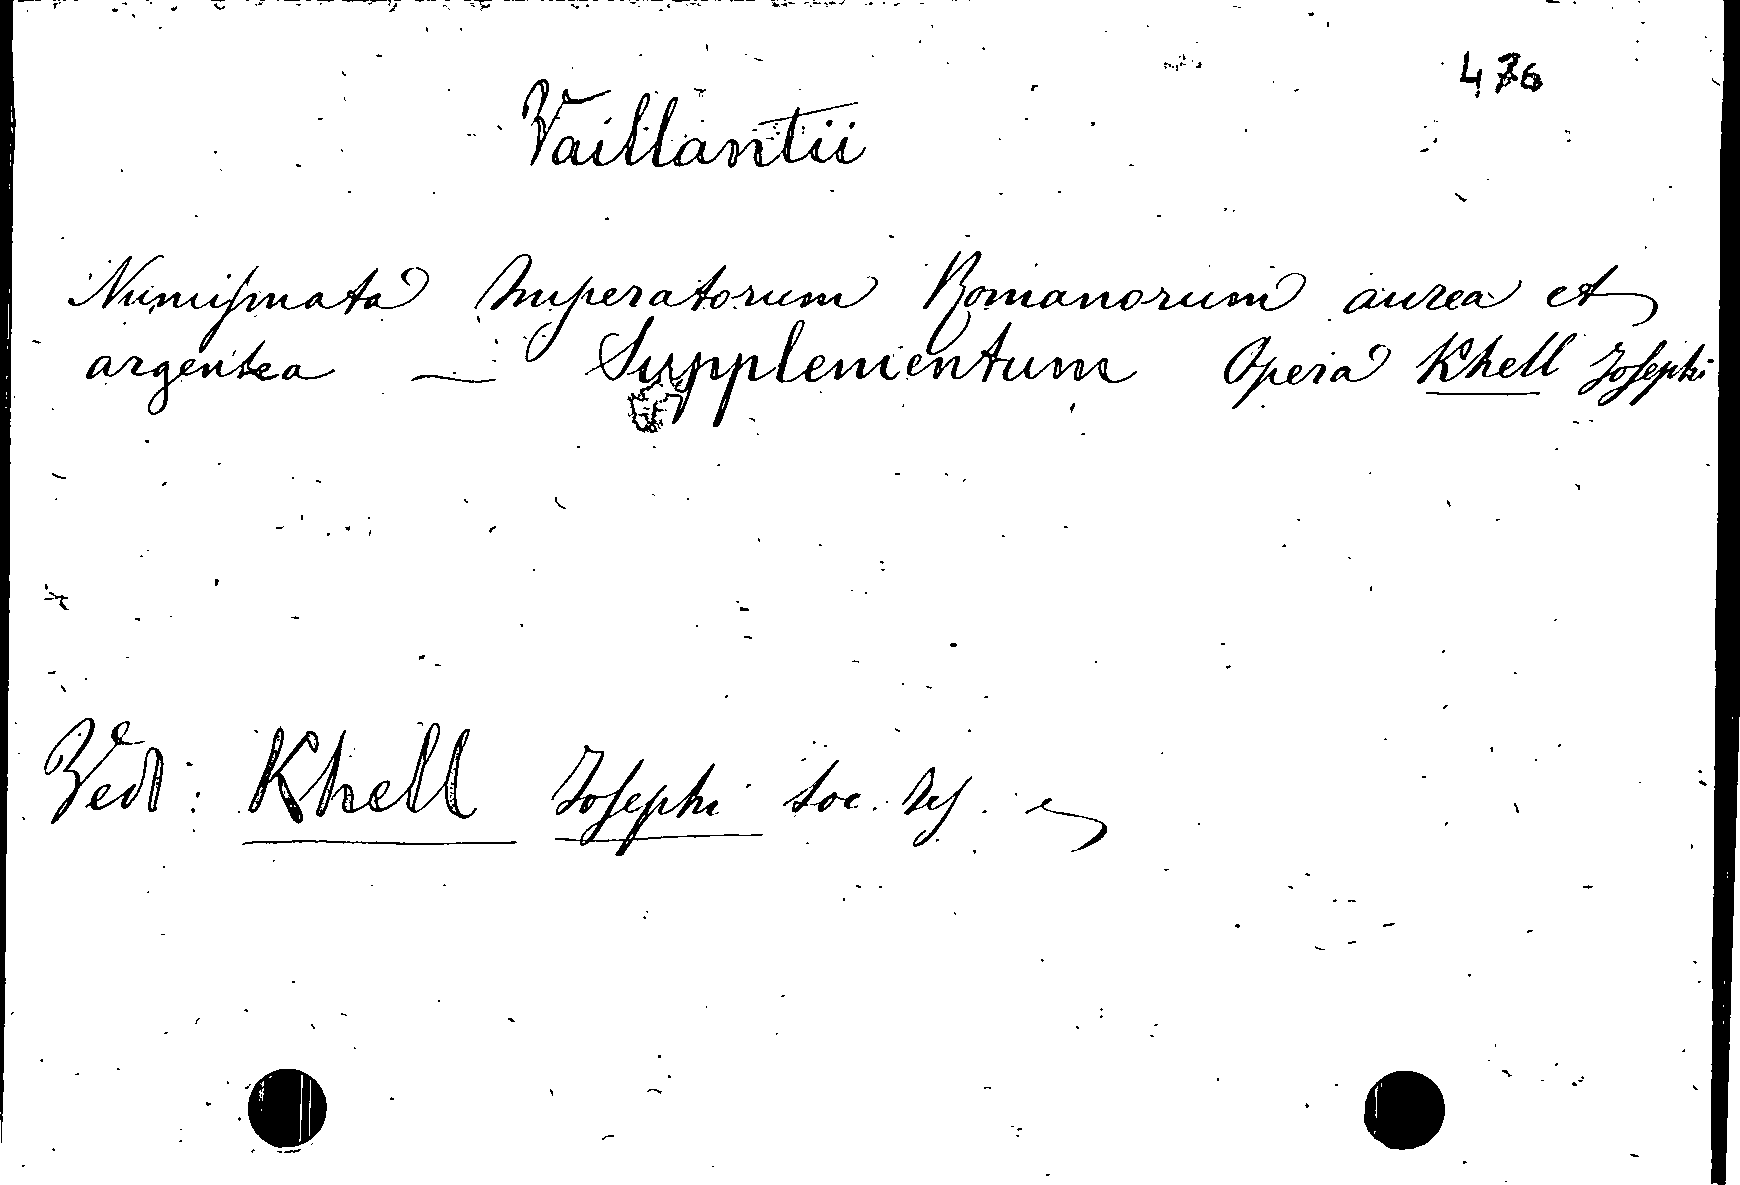 476
Vaillantii
Numismata Imperatorum Romanorum aurea et
argentea — Supplementum Opera Khell Josephi
Ved: Khell Josephi Soc. Jes.